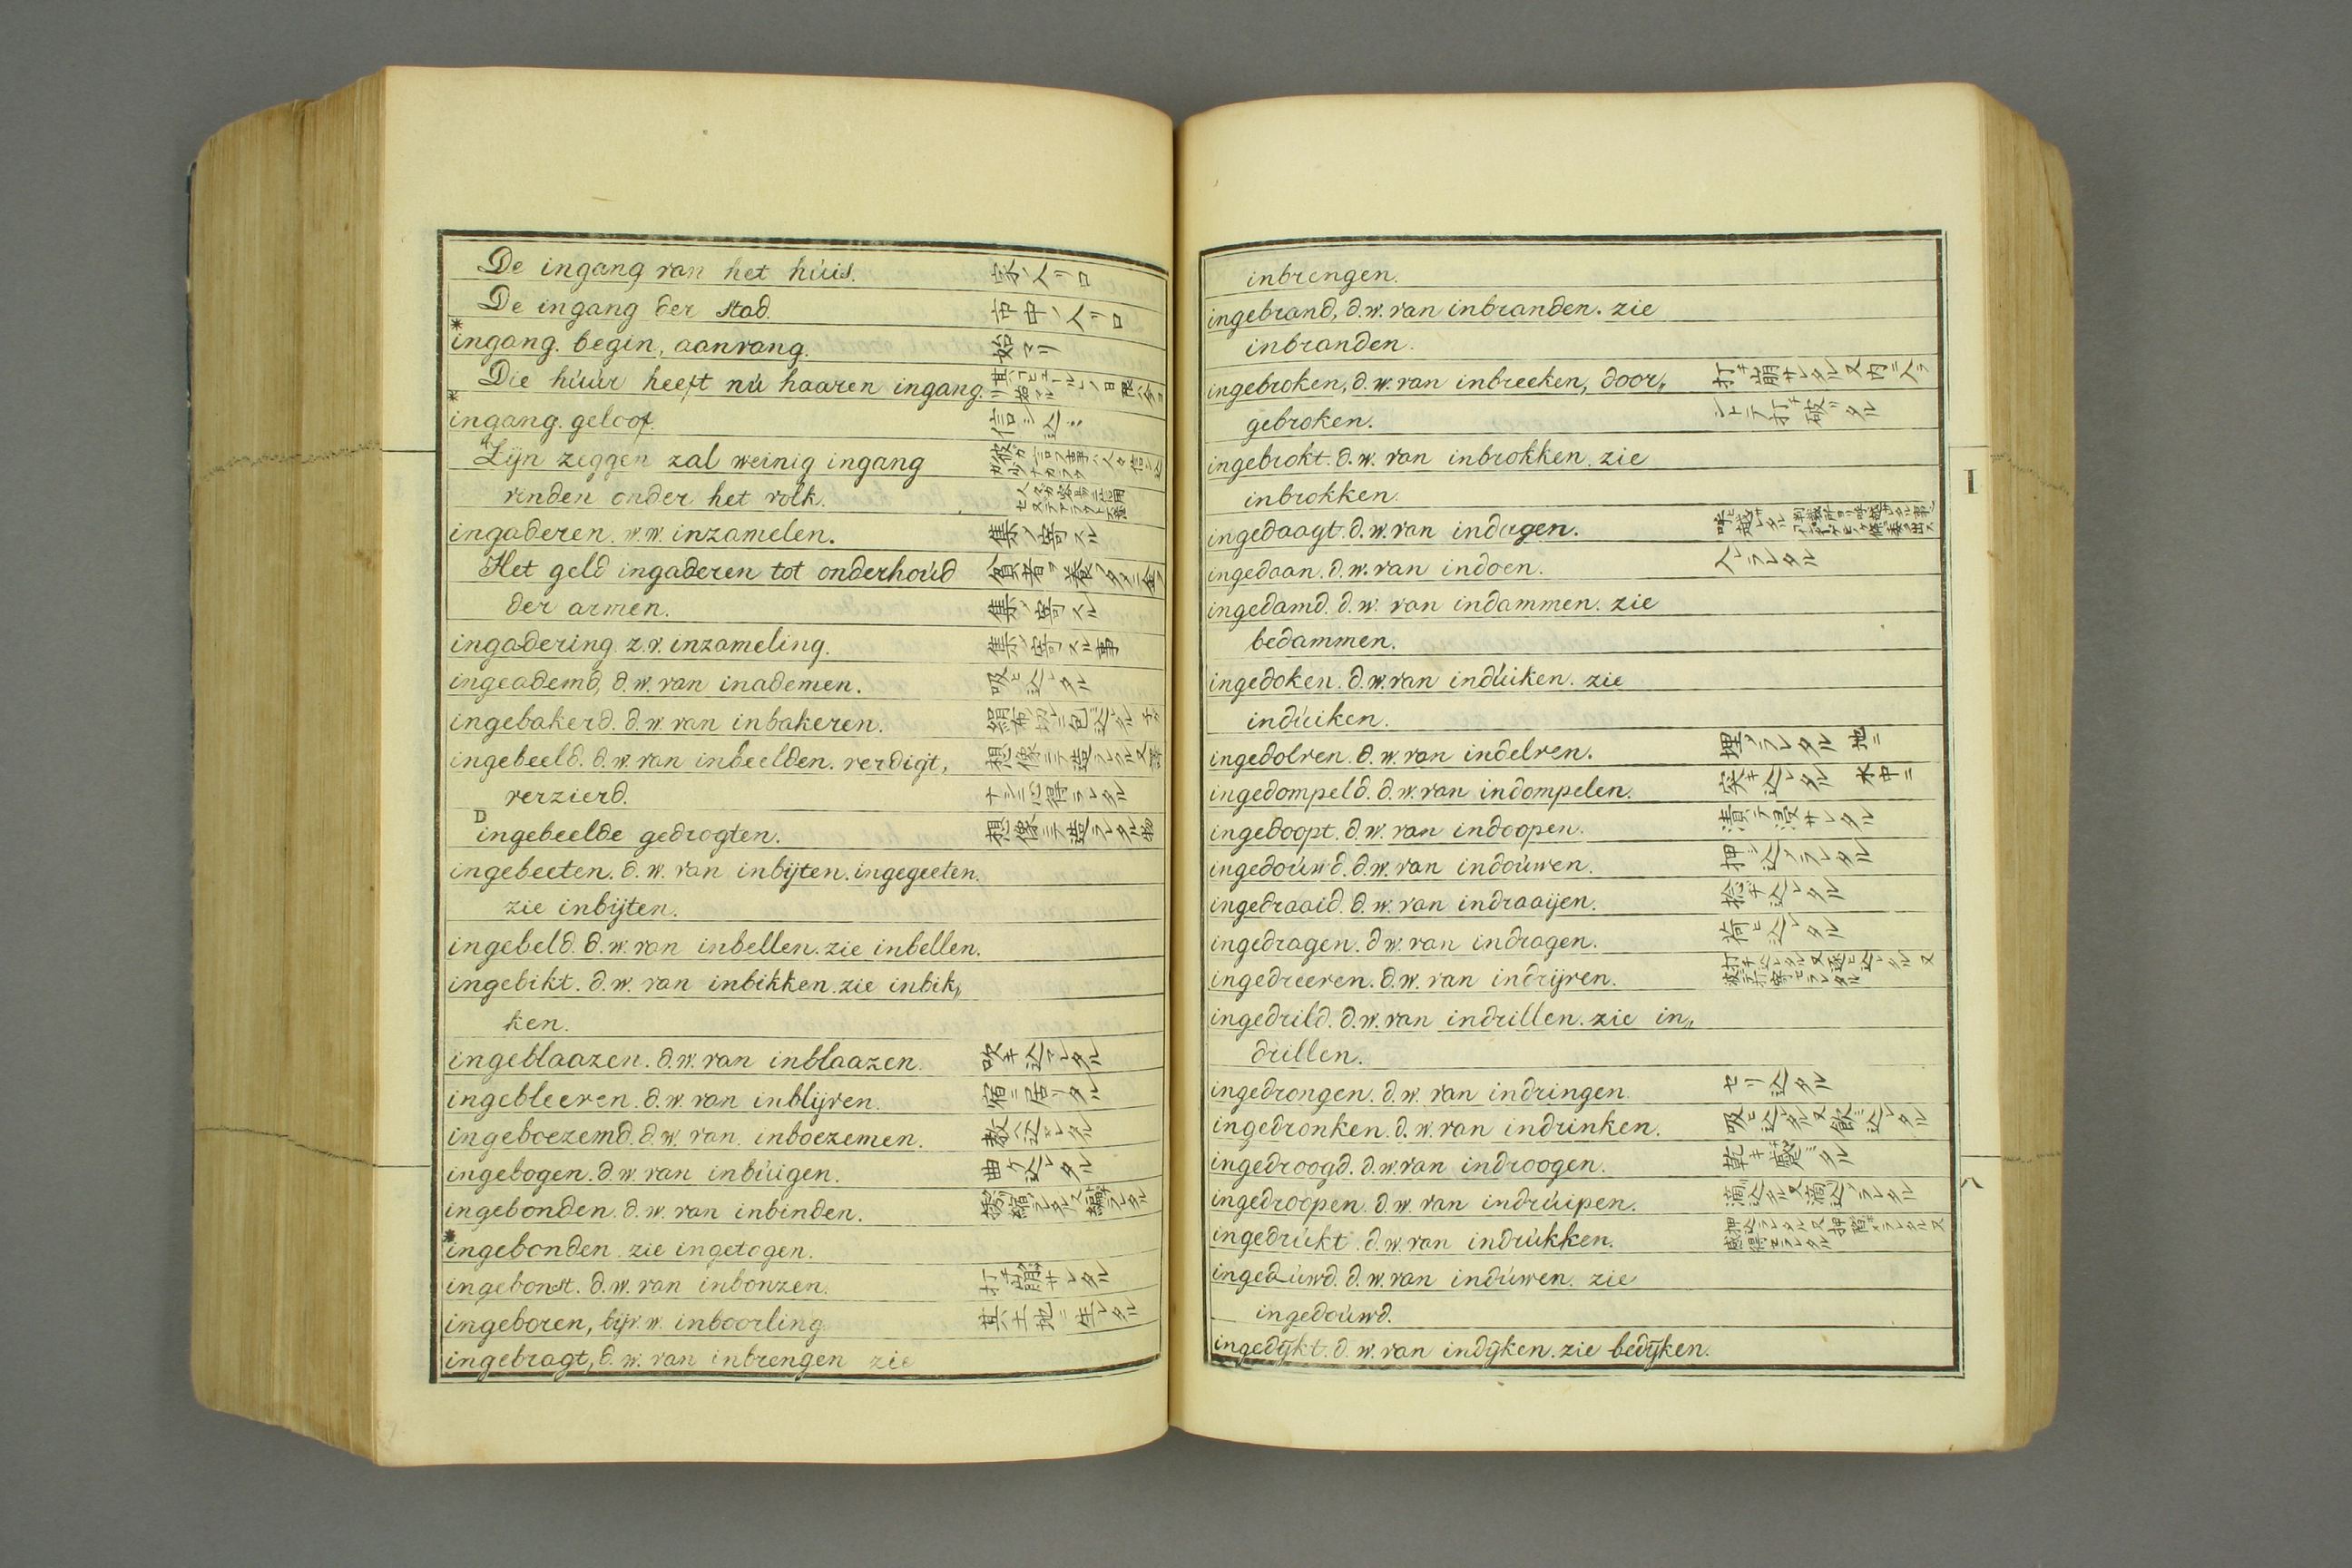 De ingang van het húis. 家ノ入リ口
De ingang der stad. 市中ノ入リ口
*ingang. begin, aanvang. 始マリ
Die húúr heeft nú haaren ingang.
*ingang. geloof. 信シ込ミ
Zijn zeggen zal weinig ingang
vinden onder het volk.
ingaderen. w.w. inzamelen. 集メ寄スル
Het geld ingaderen tot onderhoúd 貧者ヲ養フタメニ金ヲ
der armen. 集メ寄スル
ingadering. z.v. inzameling. 集メ寄スル事
ingeademd, d.w. van inademen. 吸ヒ込レタル
ingebakerd. d.w. van inbakeren.
ingebeeld. d.w. van inbeelden. verdigt,
verzierd.
D ingebeelde gedrogten. 想像ニテ造ラレタル物
ingebeeten. d.w. van inbijten. ingegeeten.
zie inbijten.
ingebeld. d.w. van inbellen. zie inbellen.
ingebikt. d.w. van inbikken. zie inbik„
ken.
ingeblaazen. d.w. van inblaazen. 吹キ込マレタル
ingebleeven. d.w. van inblijven. 宿ニ居リタル
ingeboezemd. d.w. van inboezemen. 教ヘ込マレタル
ingebogen. d.w. van inbúigen. 曲ケ込レタル
ingebonden. d.w. van inbinden.
*ingebonden. zie ingetogen.
ingebonst. d.w. van inbonzen. 打チ崩サレタル
ingeboren, bijv.w. inboorling 其土地ニ生レタル
ingebragt, d.w. van inbrengen zie
inbrengen.
ingebrand, d.w. van inbranden. zie
inbranden.
ingebroken, d.w. van inbreeken, door„ 打チ崩サレタル又内ニ入ラ
gebroken. ントテ打チ破リタル
ingebrokt. d.w. van inbrokken. zie
inbrokken.
ingedaagt. d.w. van indagen.
ingedaan. d.w. van indoen. 入レラレタル
ingedamd. d.w. van indammen. zie
bedammen.
ingedoken. d.w. van indúiken. zie
indúiken.
ingedolven. d.w. van indelven. 埋メラレタル 地ニ
ingedompeld. d.w. van indompelen. 突キ込レタル 水中ニ
ingedoopt. d.w. van indoopen. 漬テ浸サレタル
ingedoúwd. d.w. van indoúwen. 押シ込メラレタル
ingedraaid. d.w. van indraaijen. 捻チ込レタル
ingedragen. d.w. van indragen. 荷ヒ込レタル
ingedreeven. d.w. van indrijven.
ingedrild. d.w. van indrillen. zie in„
drillen.
ingedrongen. d.w. van indringen. セリ込タル
ingedronken. d.w. van indrinken. 吸ヒ込タル又飲ミ込レタル
ingedroogd. d.w. van indroogen.
ingedroopen. d.w. van indrúipen.
ingedrúkt. d.w. van indrúkken.
ingedúwd. d.w. van indúwen. zie
ingedoúwd.
ingedijkt. d.w. van indijken. zie bedijken.
I
八